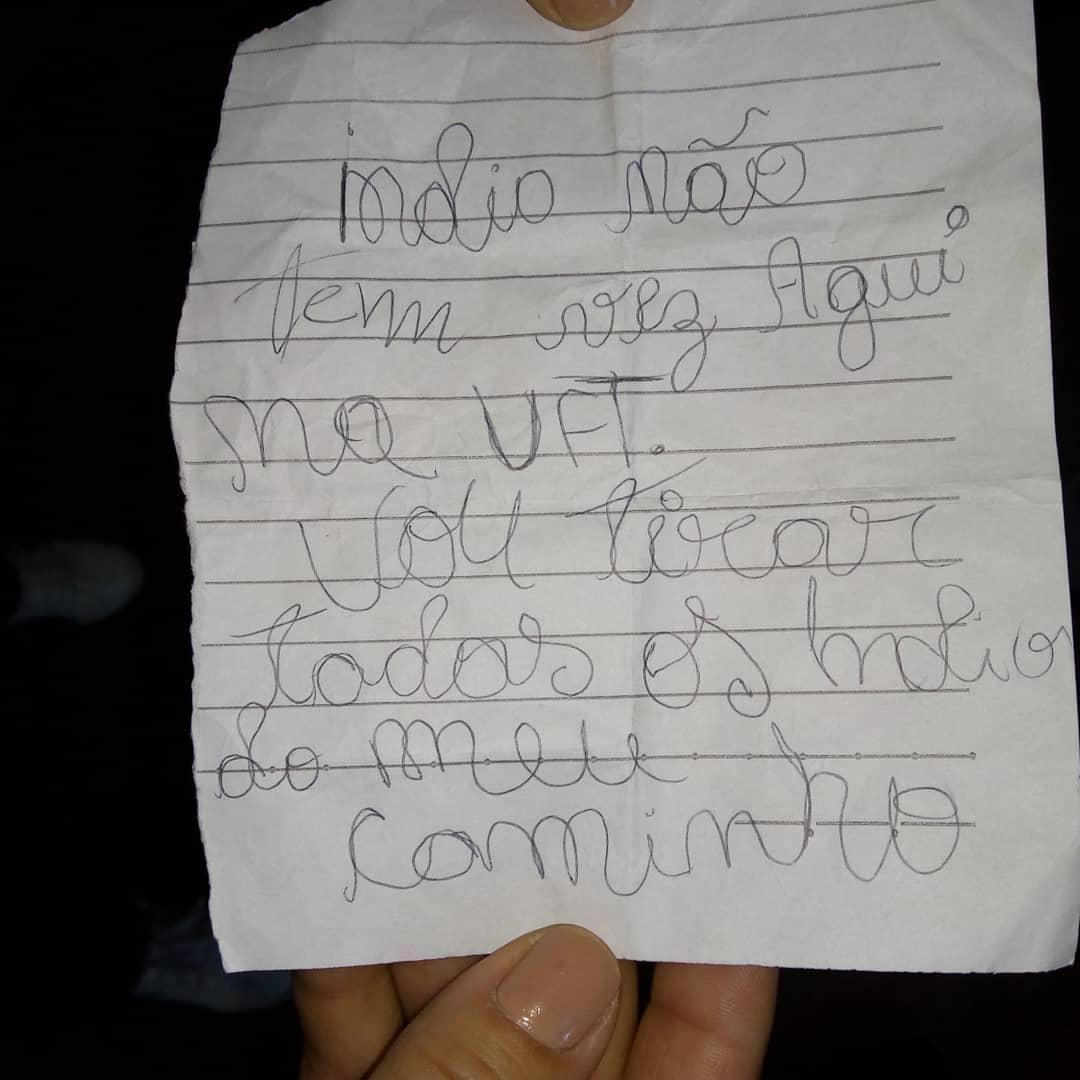 índio não
tem vez Aqui
na UFT.
Vou tirar
todos os Indios
do meu
caminho